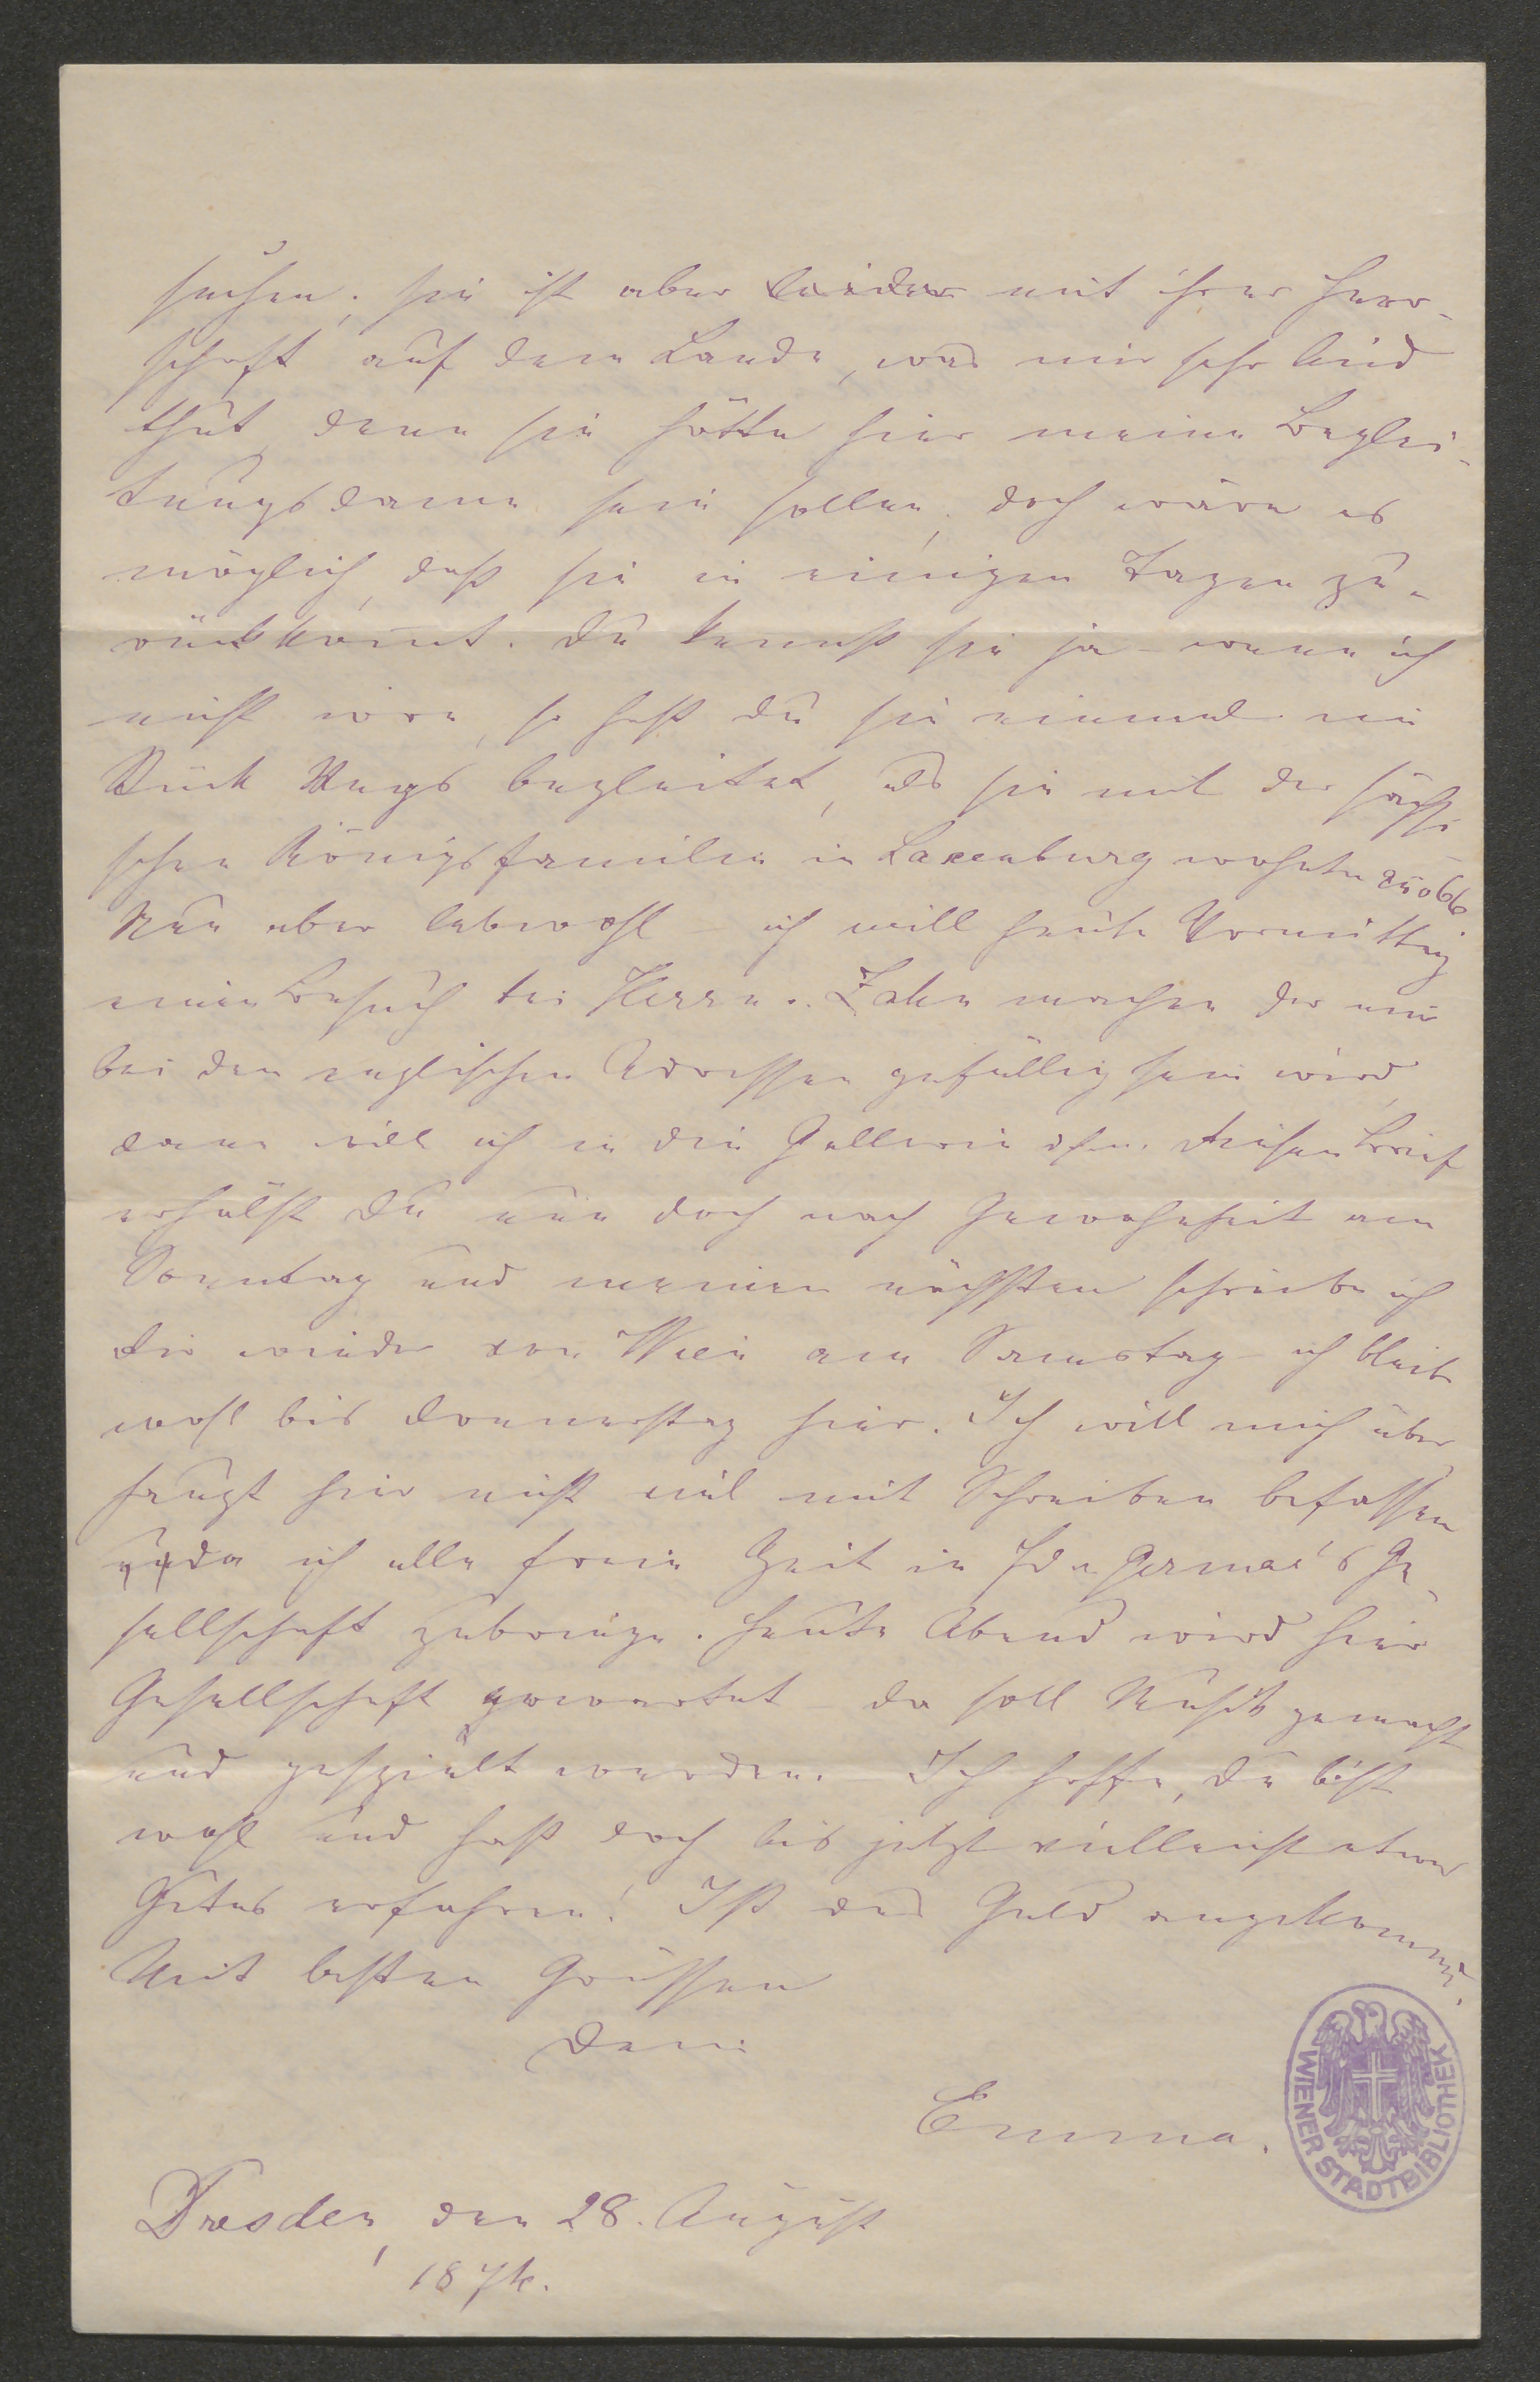 suchen, sie ist aber leider mit ihrer Herr-
schaft auf dem Lande, was mir sehr leid
thut, denn sie hätte hier meine Beglei-
tungsdame sein sollen, doch wäre es
möglich, daß sie in einigen Tagen zu-
rückkomt. Du kennst sie ja - wenn ich
nicht irre, so hast du sie einmal ein
Stück Wegs begleitet, als sie mit der sächsi
schen Königsfamilie in Laxenburg wohnte ao 66
Nun aber lebwohl - ich will heute Vormittag
einen Besuch bei Herrn Zahn machen der mir
bei den englischen Adressen gefällig sein wird,
dann will ich in die Gallerie gehen. Diesen Brief
erhälst du nun doch nach Gewohnheit am
Sonntag und meinen nächsten schreibe ich
dir wieder von Wien am Samstag - ich bleibe
wohl bis Donnerstag hier. Ich will mich über
haupt hier nicht viel mit Schreiben befassen
da ich alle freie Zeit in Ge-
sellschaft zubringe. Heute Abend wird hier
Gesellschaft erwartet - da soll Musik gemacht
und gespielt werden. Ich hoffe, du bist
wohl und hast doch bis jetzt vielleicht etwas
Gutes erfahren! Ist das Geld angekommen.
Mit besten Grüssen
Deine
Emma.
Dresden, den 28. August
1874.
WIENER STADTBIBLIOTHEK